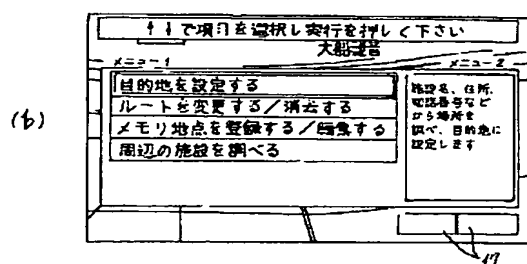 ↑↓で項目を選択し実行を押して下さい
メニュー1
メニュー2
目的地を設定する
ルートを変更する/消去する
メモリ地点を登録する/編集する
周辺の施設を調べる
施設名、住所、
電話番号など
から場所を
調べ、目的地に
設定します
(b)
17